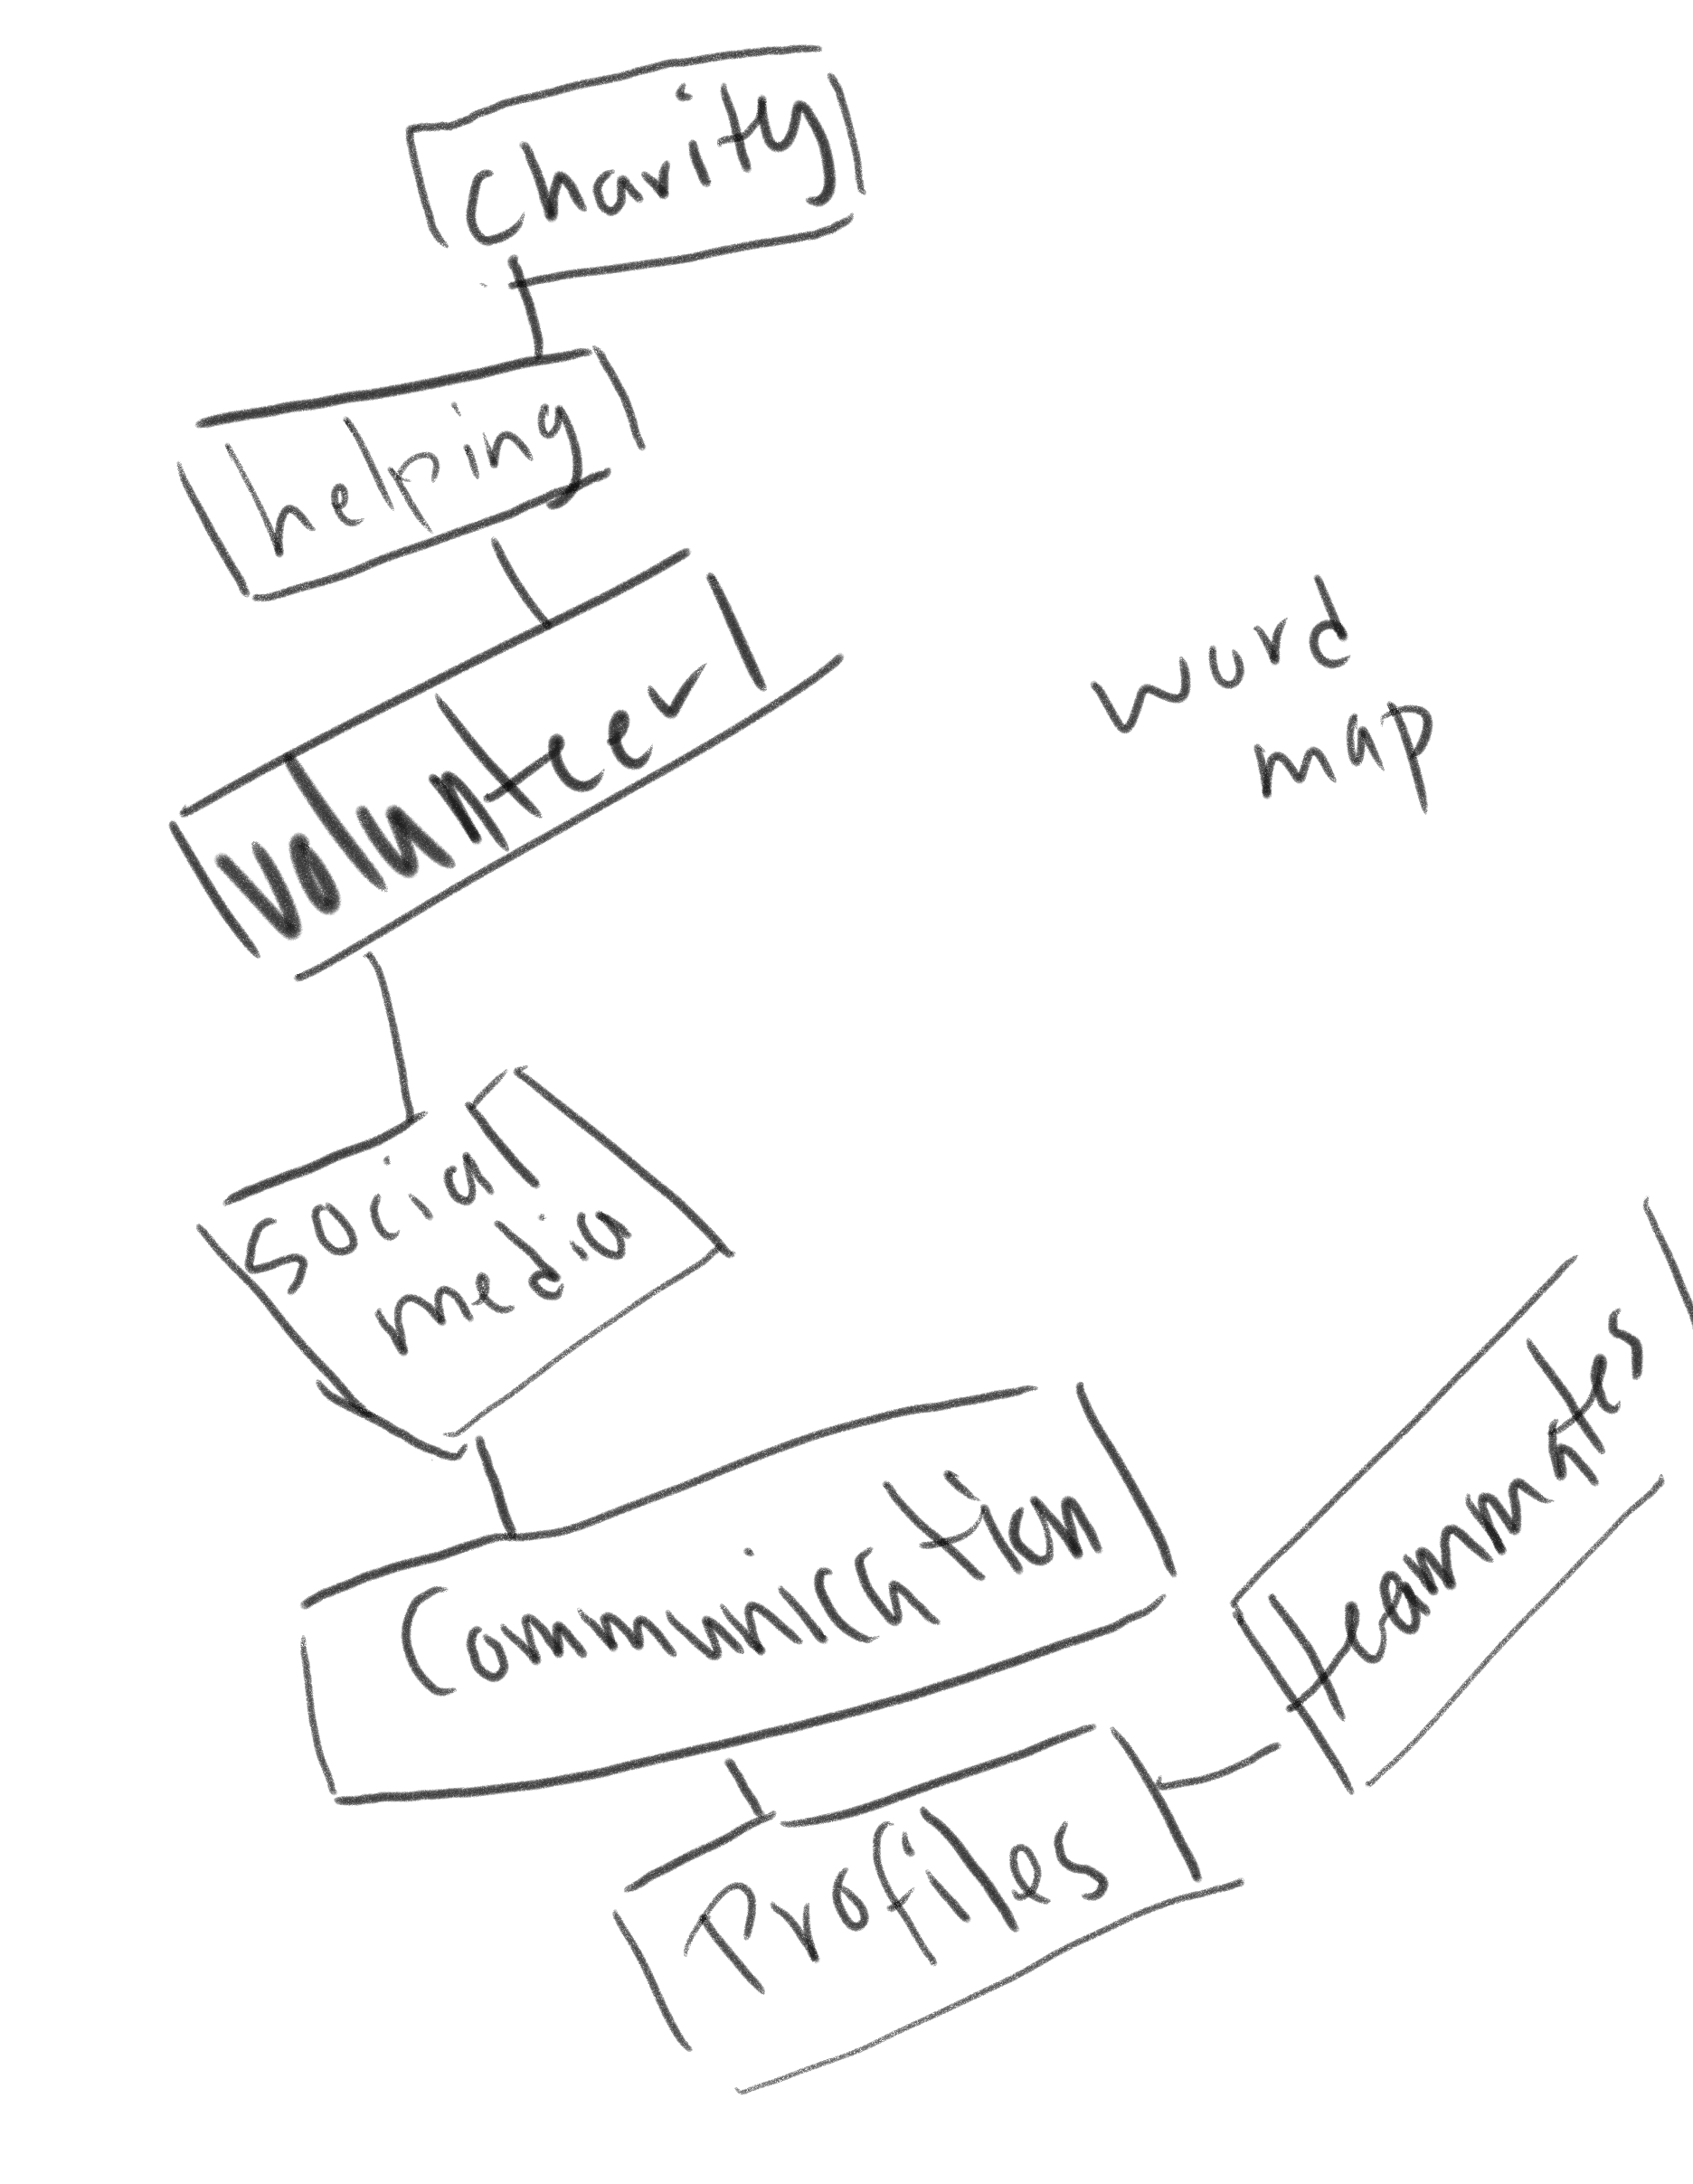 Charity
helping
volunteer
word
map
social
media
Communication
teammates
Profiles